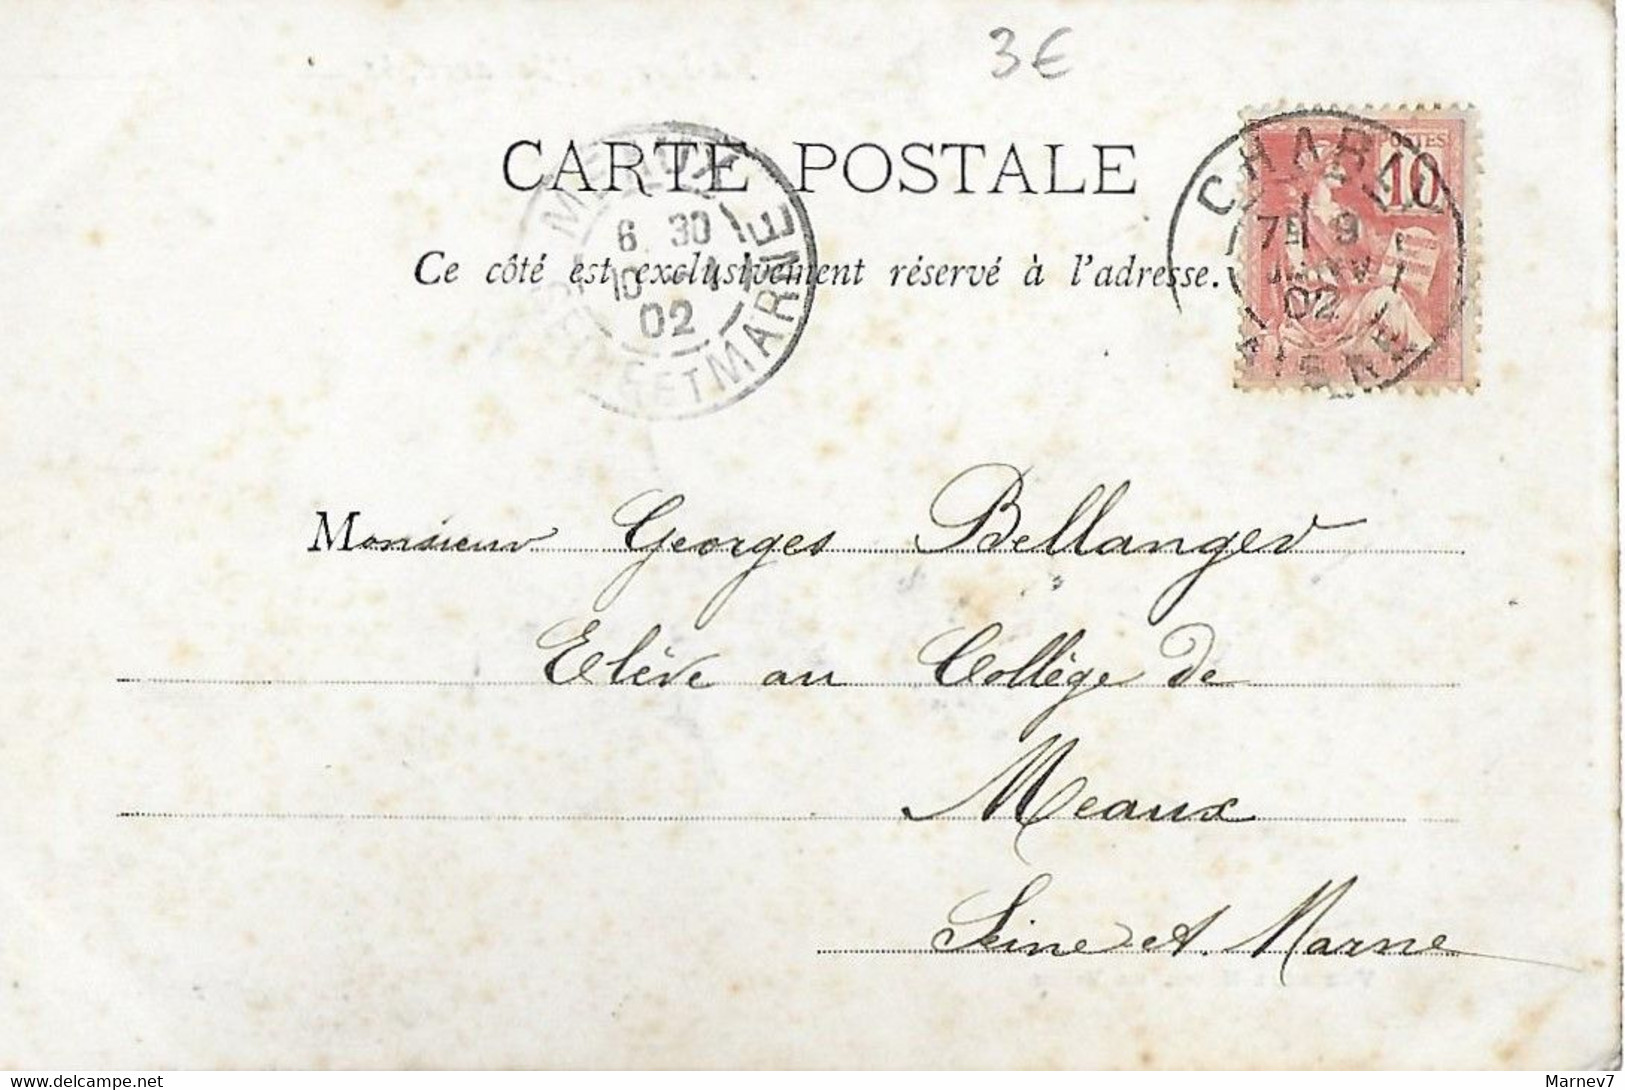 3€
CARTE POSTALE
Ce côté est exclusivement réservé à l'adresse.
POSTES
10
7E 9
JANV
02
AISNE
MEAUX
6 30
10
02
SEINE ET MARNE
Monsieur Georges Bellanger
Elève au Collège de
Meaux
Seine et Marne
delcampe.net
Marnev7